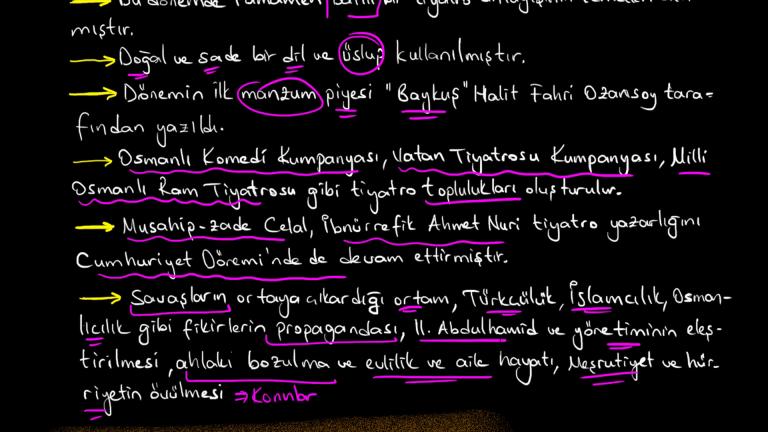 mıştır.
→ Doğal ve sade bir dil ve üslup kullanılmıştır.
→ Dönemin ilk manzum piyesi "Baykuş" Halit Fahri Ozansoy tara-
fından yazıldı.
→ Osmanlı Komedi Kumpanyası, Vatan Tiyatrosu Kumpanyası, Milli
Osmanlı Ram Tiyatrosu gibi tiyatro toplulukları oluşturulur.
→ Musahip-zade Celal, İbnürrefik Ahmet Nuri tiyatro yazarlığını
Cumhuriyet Dönemi'nde de devam ettirmiştir.
→ Savaşların ortaya çıkardığı ortam, Türkçülük, İslamcılık, Osman-
lıcılık gibi fikirlerin propagandası, II. Abdulhamid ve yönetiminin eleş-
tirilmesi, ahlaki bozulma ve evlilik ve aile hayatı, Meşrutiyet ve hür-
riyetin övülmesi ⇒ Konular